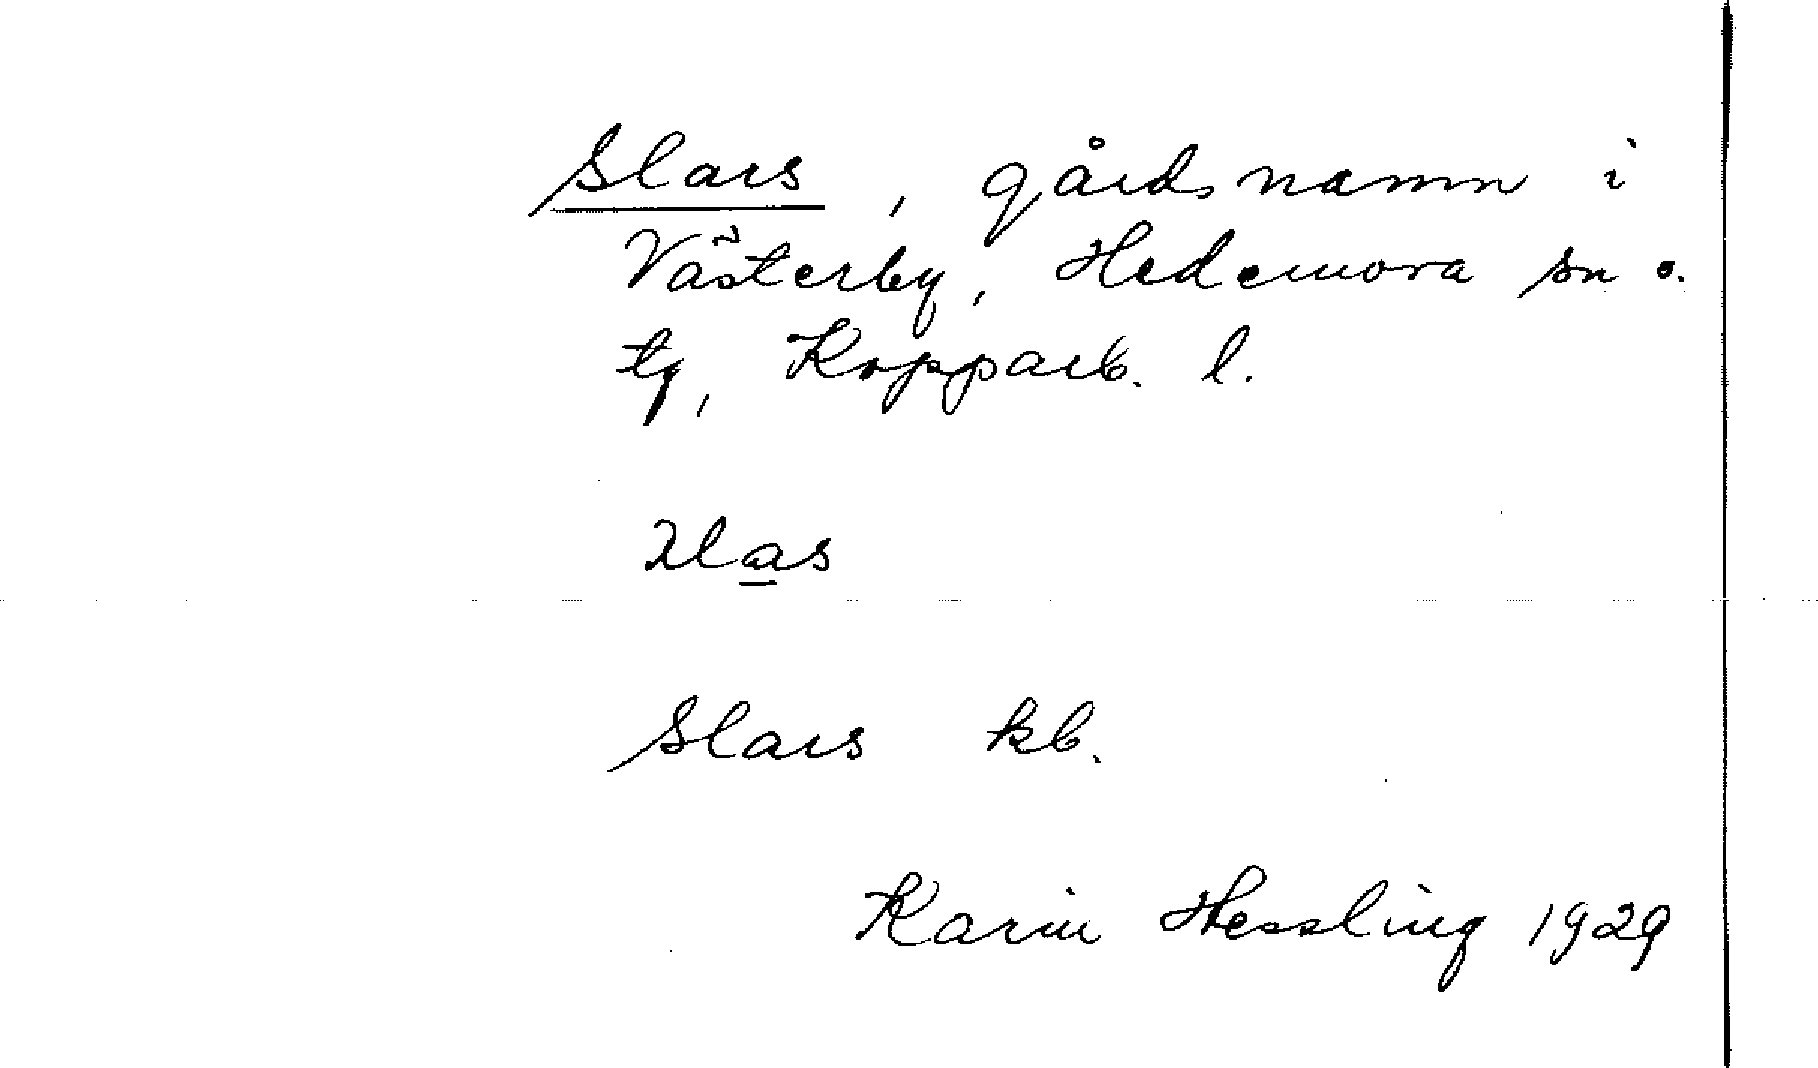 Slars, gårdsnamn i
Västerby, Hedemora sn o.
tg, Kopparb. l.
Slars kb.
Karin Hessling 1929